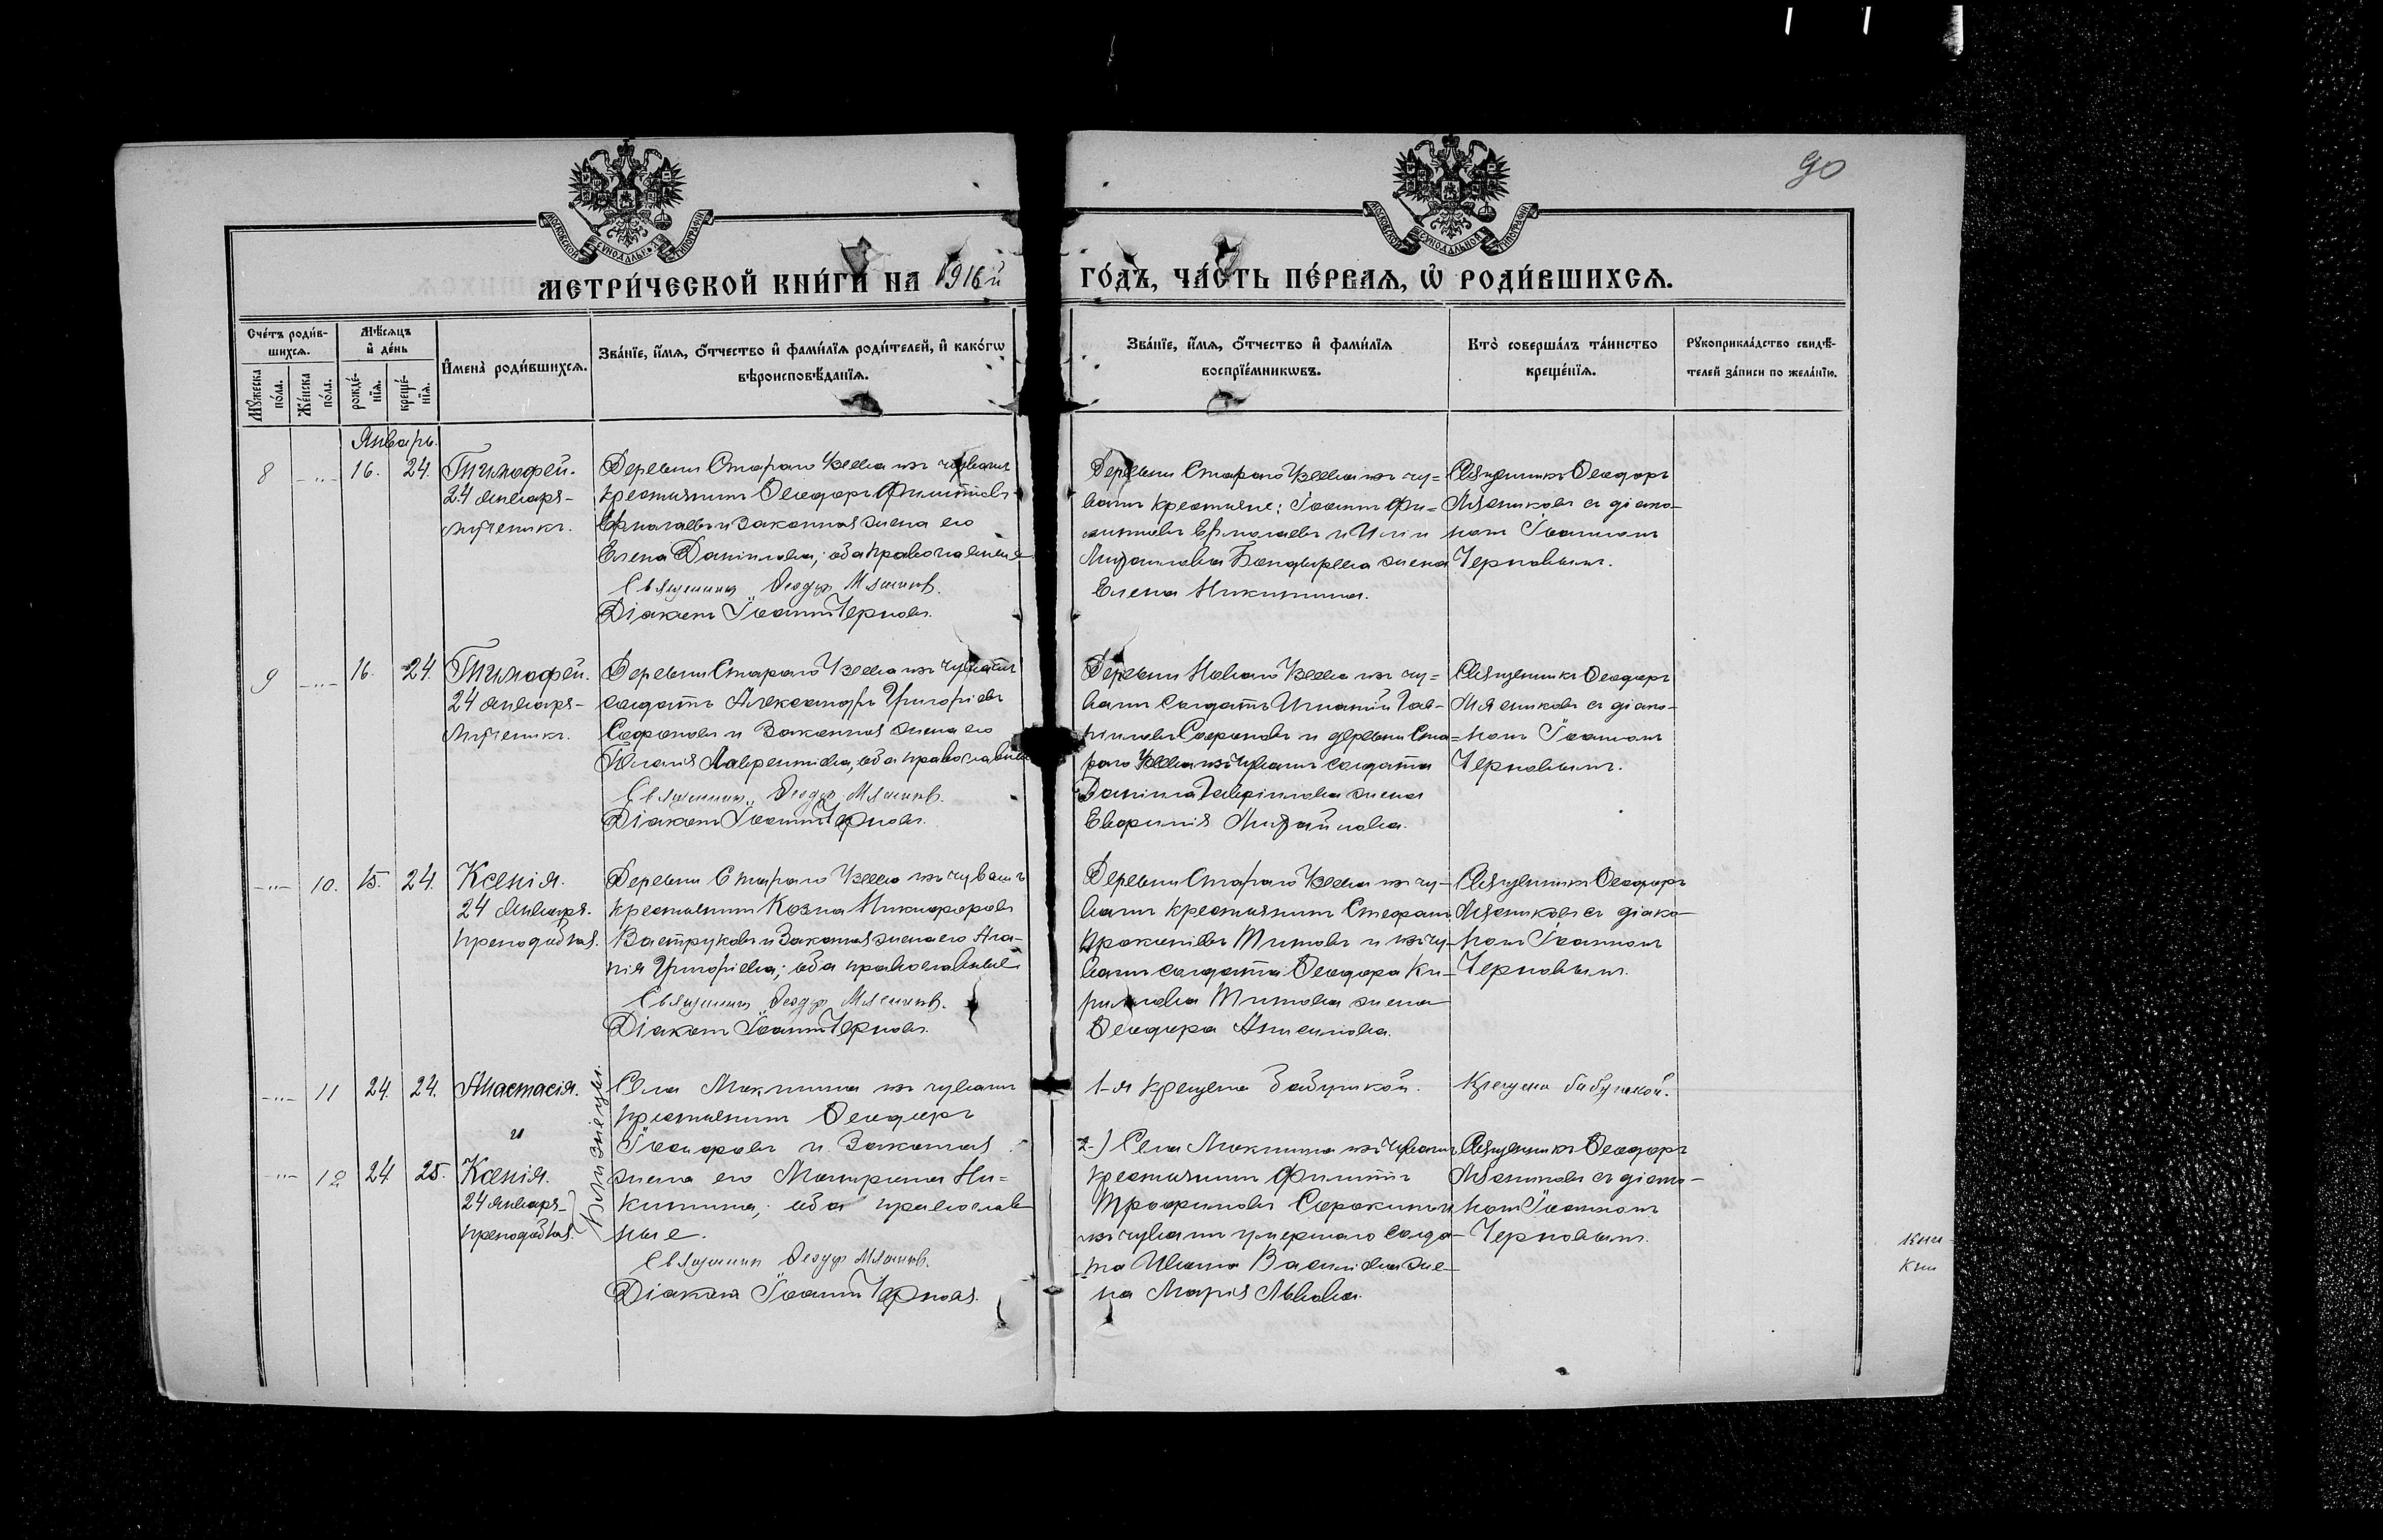 90
МЕТРИ́ЧЕСКОЙ КНИ́ГИ НА 1916й ГО́ДЪ, ЧА́СТЬ ПЕ́РВАЯ, Ѡ РОДИ́ВШИХСЯ.
Сче́тъ роди́в-
шихся.
Мꙋ́жеска по́ла.
Же́нска по́ла.
Мѣ́сяцъ и де́нь
рожде́-нїя.
креще́-нїя.
И҆мена̀ роди́вшихся.
Зва́нїе, и҆́мя, ѻ҆́тчество и҆ фами́лїя роди́телей, и҆ како́гѡ
вѣроисповѣ́данїя.
Зва́нїе, и҆́мя, ѻ҆́тчество и҆ фами́лїя
воспрїе́мникѡвъ.
Кто̀ соверша́лъ та́инство
креще́нїя.
Рꙋкоприкла́дство свидѣ́-
телей за́писи по жела́нїю.
Январь.
8 -„- 16. 24.
Тимофей.
24 января-
мученикъ.
Деревни Стараго Узеева изъ чувашъ
крестьянинъ Ѳеодоръ Филиппіевъ
Ермолаевъ и законная жена его
Елена Даніилова; оба православные
Священникъ Ѳеодоръ Мясников.
Діаконъ Іоаннъ Черновъ.
Деревни Стараго Узеева изъ чу=
вашъ крестьяне: Іоаннъ Фи=
липповъ Ермолаевъ и Иліи
Михаилова жена
Елена Никитина.
Священникъ Ѳеодоръ
Мясниковъ съ діако-
номъ Іоанномъ
Черновымъ.
9 -„- 16. 24.
Тимофей.
24 января-
мученикъ.
Деревни Стараго Узеева изъ чувашъ
солдатъ Александръ Григоріевъ
Сафоновъ и законная жена его
Пелагія Лаврентіева, оба православные
Священникъ Ѳеодоръ Мясников.
Діаконъ Іоаннъ Черновъ.
Деревни Новаго Узеева изъ чу=
вашъ солдатъ Игнатій Гав-
ріиловъ Сафоновъ и деревни Ста=
раго Узеева изъ чувашъ солдата
Даніила Гавріилова жена
Евфимія Михайлова.
Священникъ Ѳеодоръ
Мясниковъ съ діако-
номъ Іоанномъ
Черновымъ.
-„- 10. 15. 24.
Ксенія.
24 января.
преподобная.
Деревни Стараго Узеева изъ чувашъ
крестьянинъ Козма Никифоровъ
Вастрюковъ и законная жена его Ага-
пія Григоріева; оба православные
Священникъ Ѳеодоръ Мясников.
Діаконъ Іоаннъ Черновъ.
Деревни Стараго Узеева изъ чу-
вашъ крестьянинъ Стефанъ
Прокопіевъ Титовъ и изъ чу-
вашъ солдата Ѳеодора Ки-
риллова Титова жена
Ѳеодора Антипова.
Священникъ Ѳеодоръ
Мясниковъ съ діако-
номъ Іоанномъ
Черновымъ.
-„- 11 24. 24.
Анастасія.
и
-„- 12 24 25.
Ксенія.
24 января-
преподобная.
Близнецы.
Села Мокшина изъ чувашъ
крестьянинъ Ѳеодоръ
и законная
жена его Матрона Ни=
китина; оба православ
ные.
Священникъ Ѳеодоръ Мясников.
Діаконъ Іоаннъ Черновъ.
1-я крещена бабушкой.
2-) Села Мокшина изъ чувашъ
крестьянинъ Филиппъ
Трофимовъ Сорокинъ и
изъ чувашъ умершаго солда-
та Ивана Васильева же-
на Марія Львова.
Крещена бабушкой.
Священникъ Ѳеодоръ
Мясниковъ съ діако-
номъ Іоанномъ
Черновымъ.